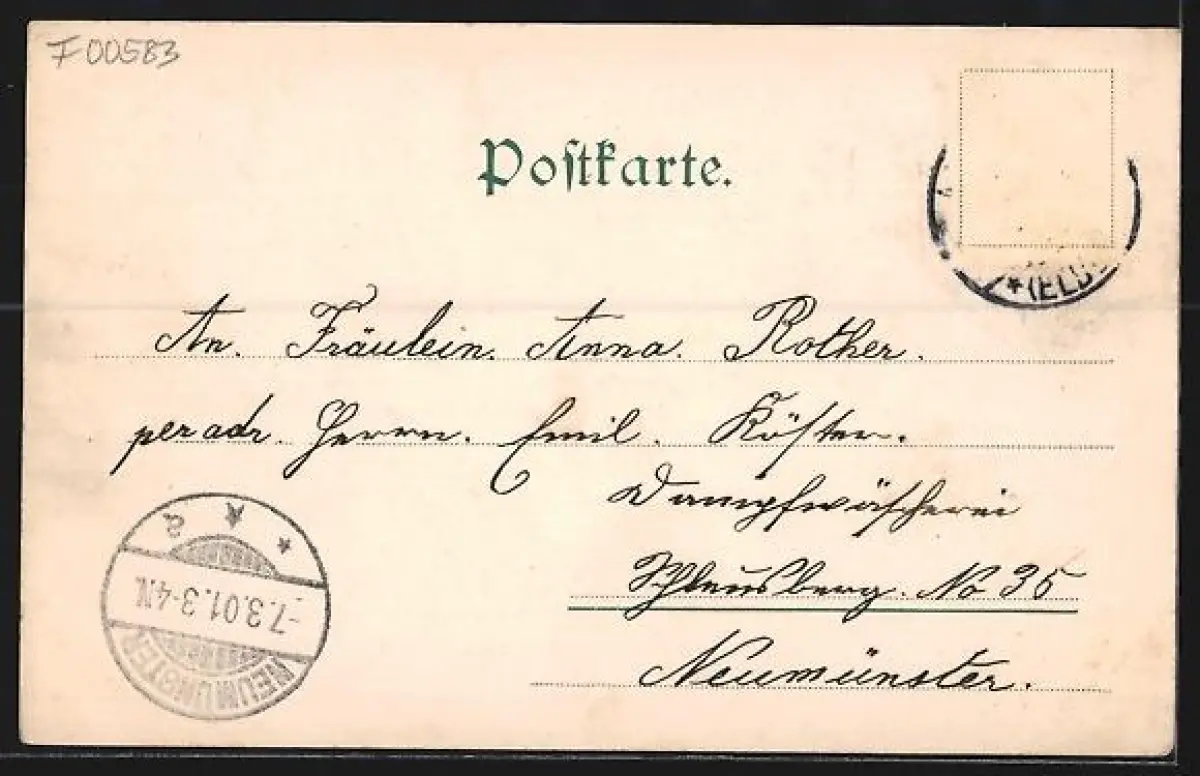 F00583
Postkarte.
*(ELB
An. Fräulein. Anna. Rother.
per adr. Herrn. Emil. Köster.
Dampfwäscherei
Schleusberg. No 35
Neumünster.
* A a
-7.3.01.3-4N.
NEUMÜNSTER